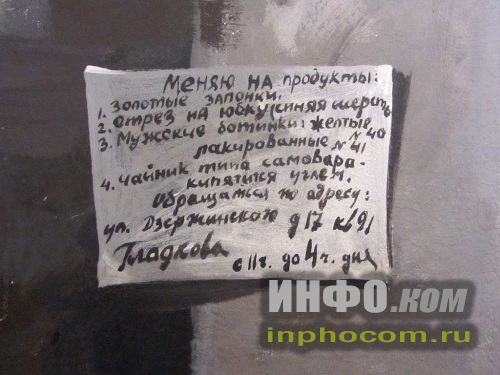 Меняю на продукты:
1. Золотые запонки.
2. Отрез на юбку, синяя шерсть
3. Мужские ботинки: желтые №40
лакированные №41
4. Чайник типа самовара-
кипятится углем.
Обращаться по адресу:
ул. Дзержинского д 17 кв 91
Гладкова с 11ч. до 4ч. дня
ИНФО.ком
inphocom.ru